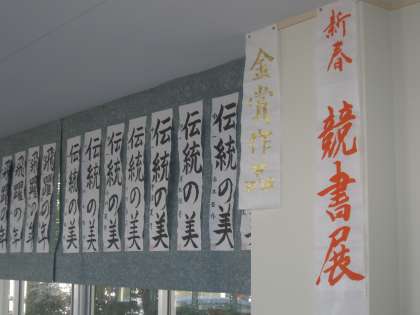 新春
競書展
金賞作品
伝統の美
伝統の美
伝統の美
伝統の美
伝統の美
伝統の美
伝統の美
飛躍の年
飛躍の年
飛躍の年
飛躍の年